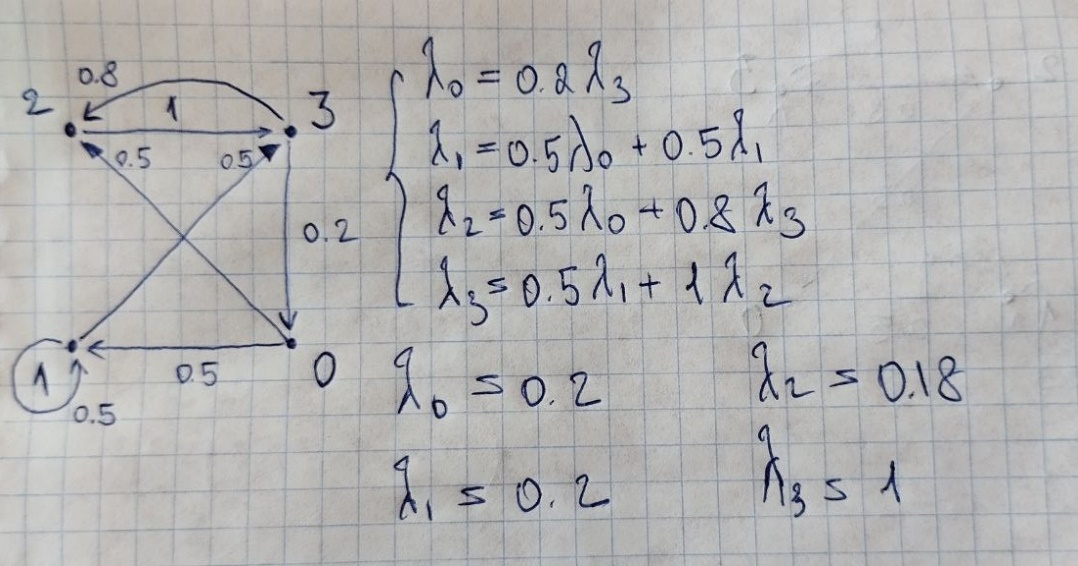 0.8
2 1 3
0.5 0.5
0.2
1 0.5 0
0.5
λ₀ = 0.2λ₃
λ₁ = 0.5λ₀ + 0.5λ₁
λ₂ = 0.5λ₀ + 0.8λ₃
λ₃ = 0.5λ₁ + 1λ₂
λ₀ = 0.2 λ₂ = 0.18
λ₁ = 0.2 λ₃ = 1